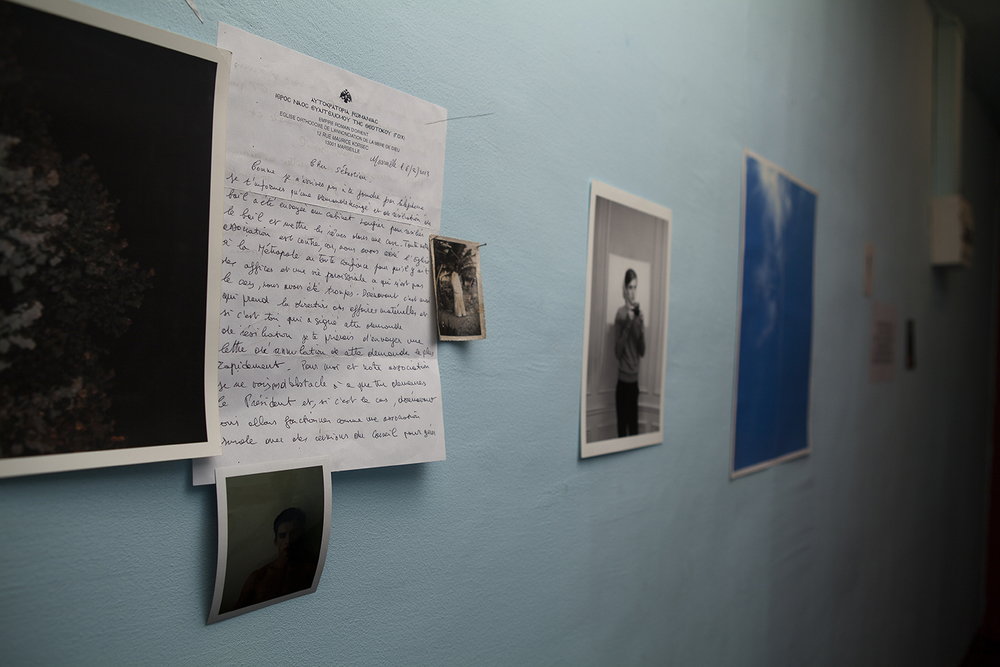 ΑΥΤΟΚΡΑΤΟΡΙΑ ΡΩΜΑΝΙΑΣ
ΙΕΡΟΣ ΝΑΟΣ ΕΥΑΓΓΕΛΙΣΜΟΥ ΤΗΣ ΘΕΟΤΟΚΟΥ (Γ.Ο.Χ)
EMPIRE ROMAIN D'ORIENT
EGLISE ORTHODOXE DE L'ANNONCIATION DE LA MERE DE DIEU
12 RUE MAURICE KORSEC
13001 MARSEILLE
Marseille
Cher Sébastien
Comme je n'arrives pas à te joindre par téléphone
je t'informes qu'une demande et résiliation de
bail a été envoyée au Cabinet pour résilier
le bail et mettre les dans une cave. Toute notre
association est contre, car nous avons cédé l'Eglise
à la Métropole en toute confiance pour qu'il y ait
des offices et une vie paroissiale ce qui n'est pas
le cas, nous avons été trompés. Dorénavant c'est moi
qui prend la directive des affaires matérielles et
si c'est toi qui a signé cette demande
de résiliation je te prierais d'envoyer une
lettre de annulation de cette demande le plus
rapidement. Pour moi et notre association
je ne vois pas d'obstacle à ce que tu demeures
le Président et, si c'est le cas, dorénavant
nous allons fonctionner comme une association
normale avec des réunions du Conseil pour gérer